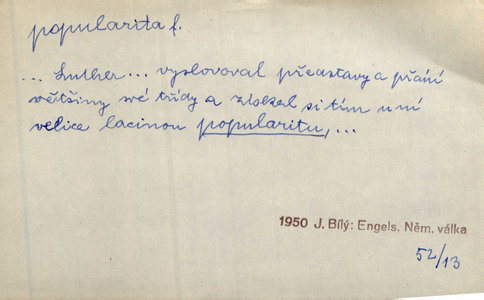 popularita f.
... Luther... vyslovoval představy a přání
většiny své třídy a získal si tím u ní
velice lacinou popularitu, ...
1950 J. Bílý: Engels, Něm. válka
52/13